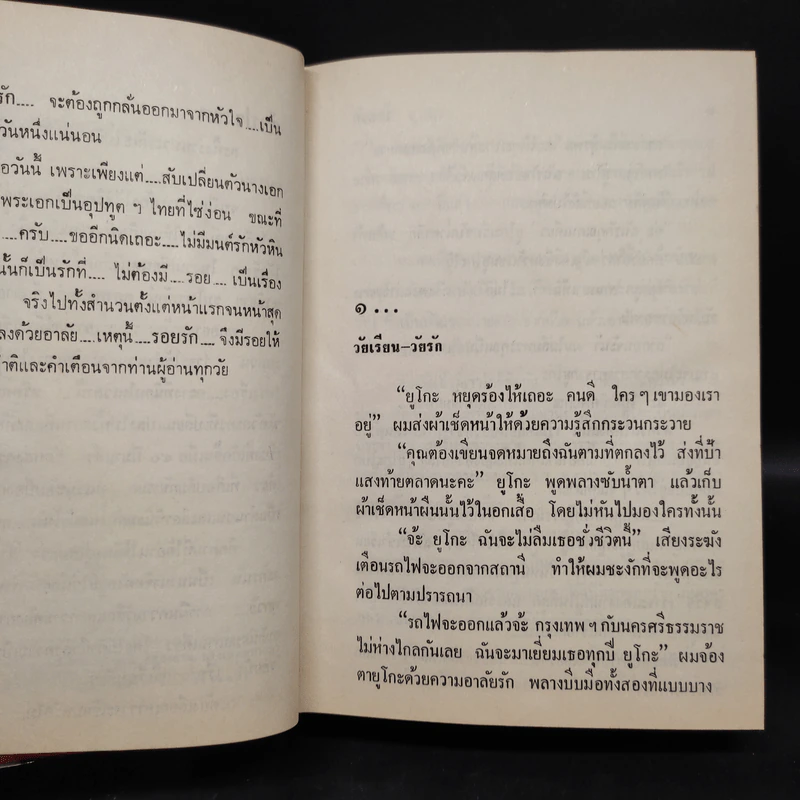 รัก.... จะต้องถูกกลั่นออกมาจากหัวใจ....เป็น
วันหนึ่งแน่นอน
วันนี้ เพราะเพียงแต่....สับเปลี่ยนตัวนางเอก
พระเอกเป็นอุปทูต ฯ ไทยที่ไซ่ง่อน ขณะที่
....ครับ....ขออีกนิดเถอะ....ไม่มีมนต์รักหัวหิน
นั้นก็เป็นรักที่.... ไม่ต้องมี....รอย....เป็นเรื่อง
จริงไปทั้งสำนวนตั้งแต่หน้าแรกจนหน้าสุด
ลงด้วยอาลัย....เหตุนี้....รอยรัก....จึงมีรอยให้
และคำเตือนจากท่านผู้อ่านทุกวัย
๑ ...
วัยเรียน–วัยรัก
“ยูโกะ หยุดร้องไห้เถอะ คนดี ใคร ๆ เขามองเรา
อยู่” ผมส่งผ้าเช็ดหน้าให้ด้วยความรู้สึกกระวนกระวาย
“คุณต้องเขียนจดหมายถึงฉันตามที่ตกลงไว้ ส่งที่ป้า
แสงท้ายตลาดนะคะ” ยูโกะ พูดพลางซับน้ำตา แล้วเก็บ
ผ้าเช็ดหน้าผืนนั้นไว้ในอกเสื้อ โดยไม่หันไปมองใครทั้งนั้น
“จ้ะ ยูโกะ ฉันจะไม่ลืมเธอชั่วชีวิตนี้” เสียงระฆัง
เตือนรถไฟจะออกจากสถานี ทำให้ผมชะงักที่จะพูดอะไร
ต่อไปตามปรารถนา
“รถไฟจะออกแล้วจ้ะ กรุงเทพ ฯ กับนครศรีธรรมราช
ไม่ห่างไกลกันเลย ฉันจะมาเยี่ยมเธอทุกปี ยูโกะ” ผมจ้อง
ตายูโกะด้วยความอาลัยรัก พลางบีบมือทั้งสองที่แบบบาง